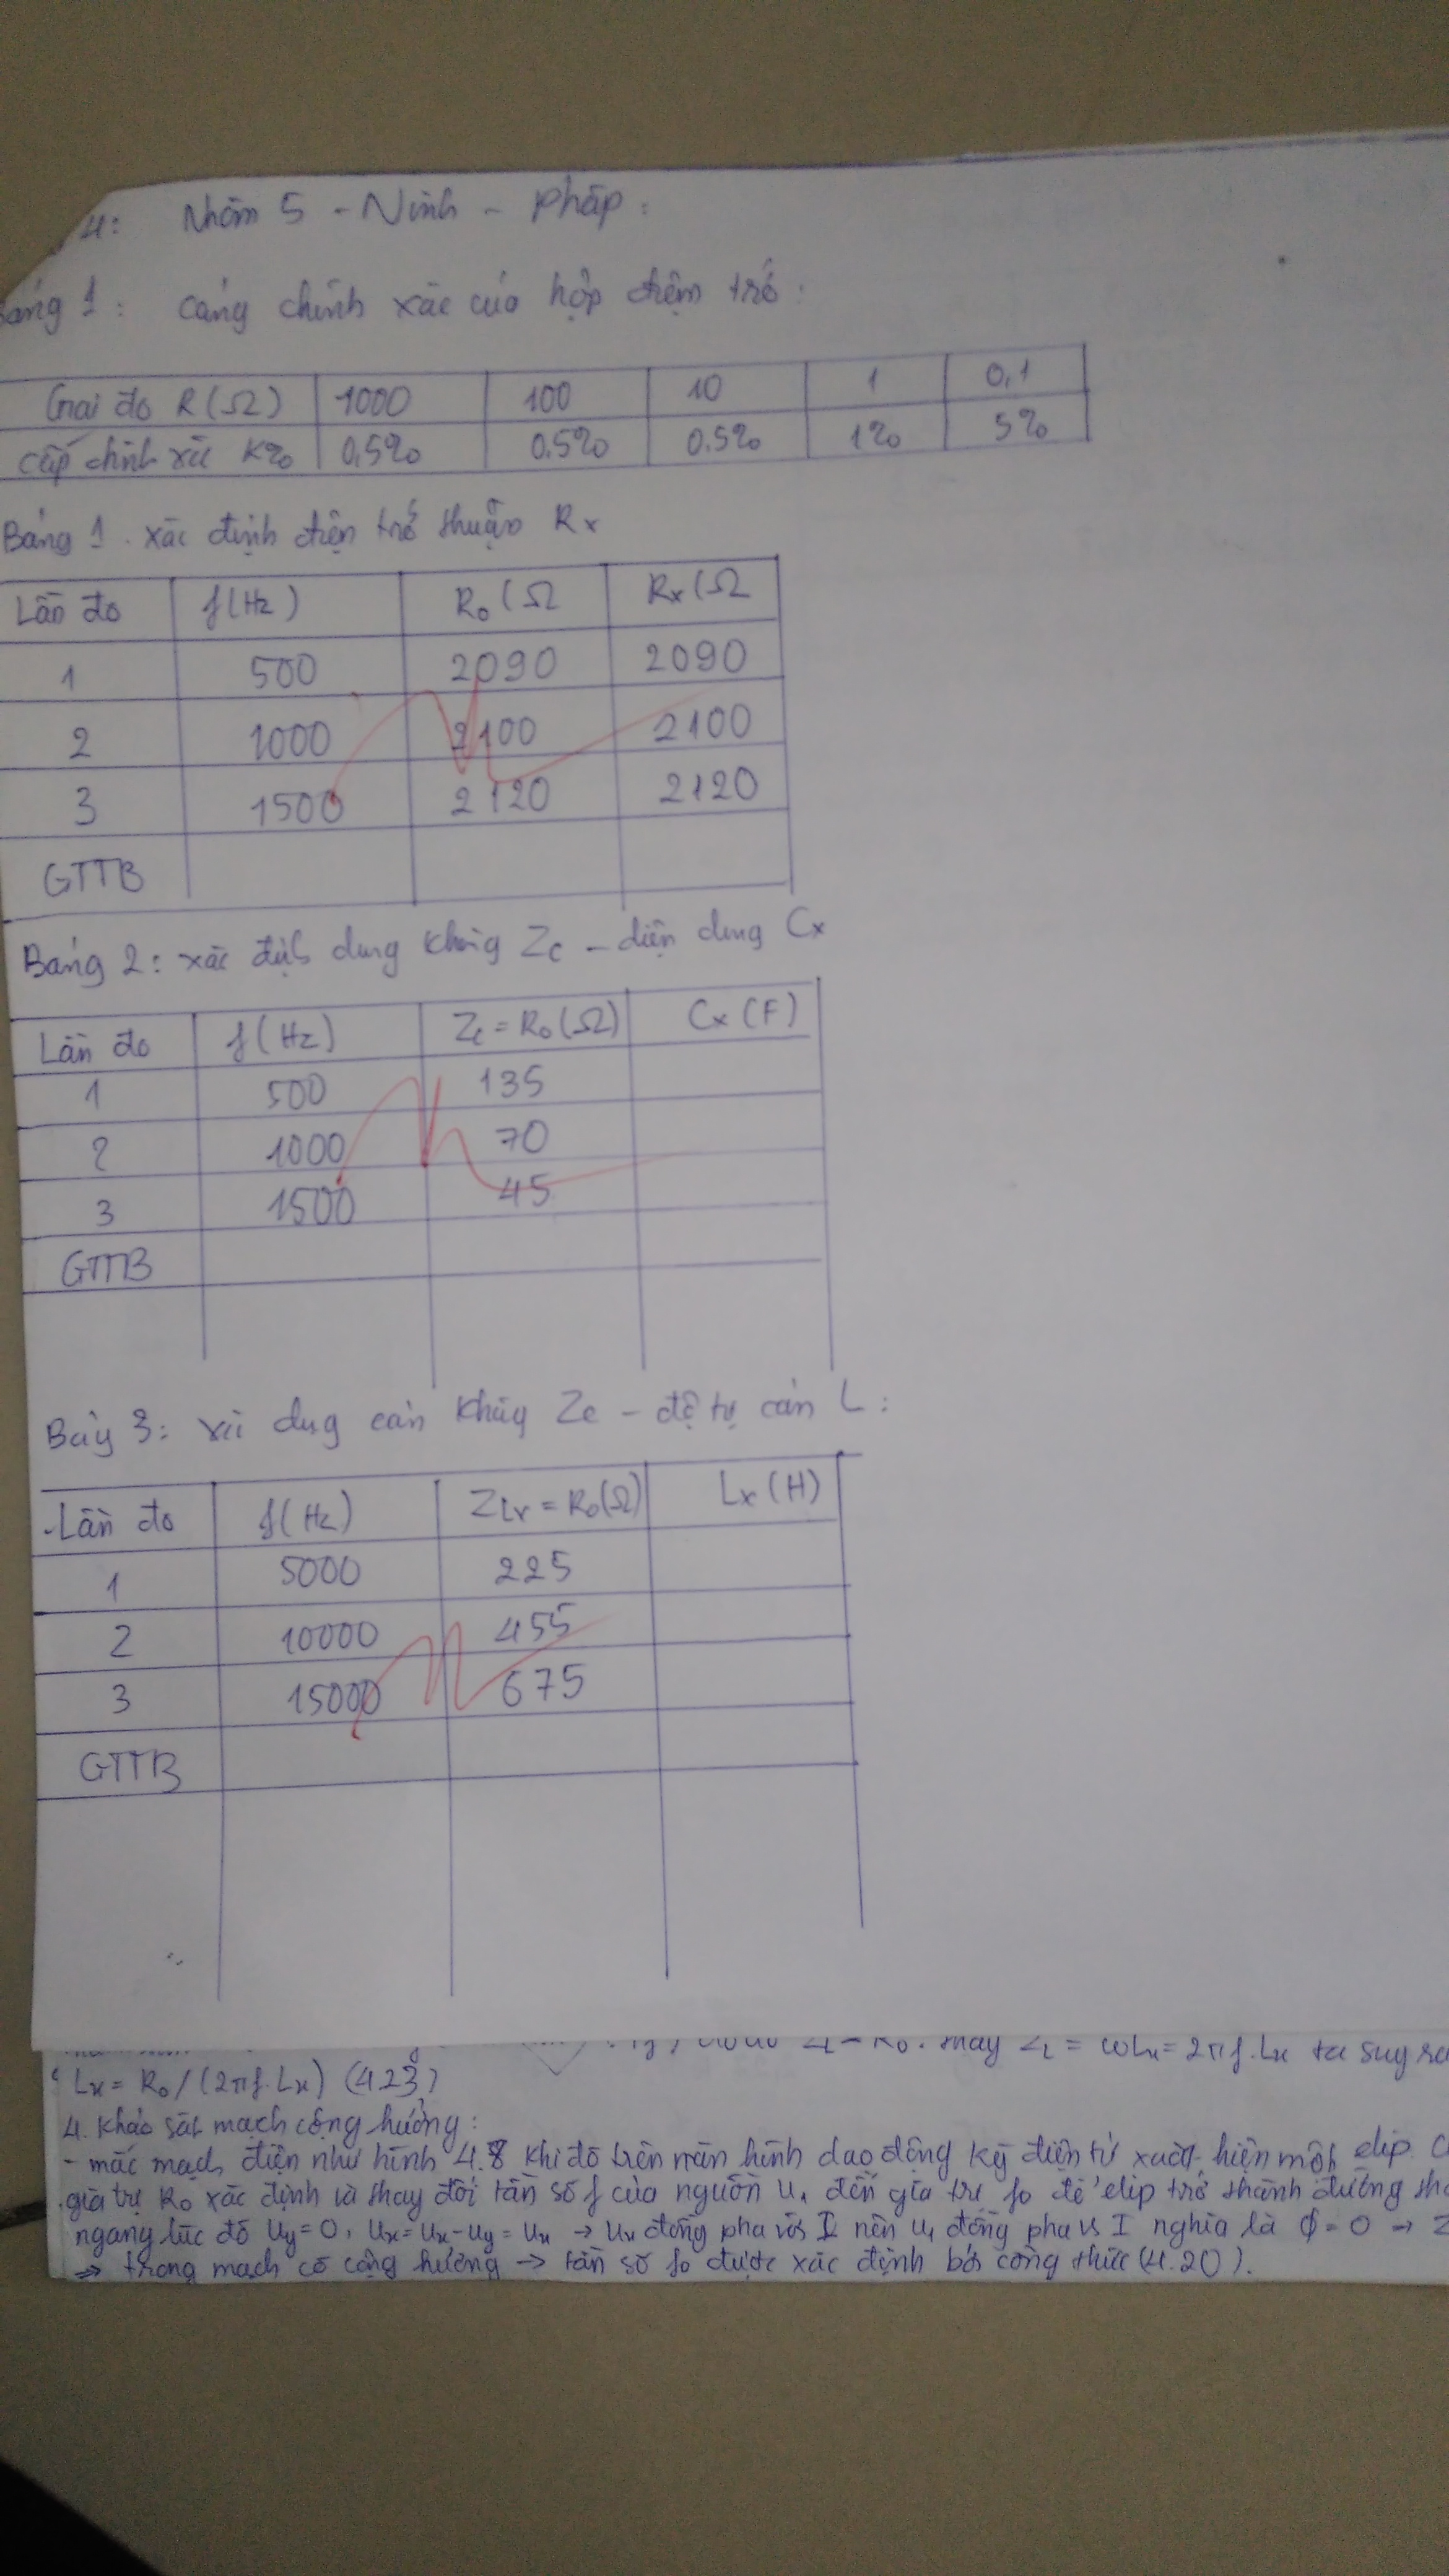 4: Nhóm 5 - Ninh - Pháp:
Bảng 1: cảng chính xác của hộp điện trở:
Giai đo R(Ω) 1000 100 10 1 0,1
cấp chính xác K% 0,5% 0.5% 0.5% 1% 5%
Bảng 1. xác định điện trở thuần Rx
Lần đo f(Hz) Ro(Ω Rx(Ω
1 500 2090 2090
2 1000 2100 2100
3 1500 2120 2120
GTTB
Bảng 2: xác định dung kháng Zc - điện dung Cx
Lần đo f(Hz) Zc = Ro(Ω) Cx(F)
1 500 135
2 1000 70
3 1500 45
GTTB
3: cảm kháng - độ tự cảm L:
Lần đo f(Hz) ZLx = Ro(Ω) Lx(H)
1 5000 225
2 10000 455
3 15000 675
GTTB
Ro. thay ZL = ωLx = 2πf.Lx ta suy ra
Lx = Ro/(2πf.Lx) (4.23)
4. khảo sát mạch cộng hưởng:
- mắc mạch điện như hình 4.8 khi đó trên màn hình dao động ký điện tử xuất hiện một elip
giá trị Ro xác định và thay đổi tần số f của nguồn U1 đến giá trị fo để elip trở thành đường
ngang lúc đó Uy=0, Ux=Ux-Uy=Ux → Ux đồng pha với I nên U1 đồng pha vs I nghĩa là ϕ=0 → Z
⇒ trong mạch có cộng hưởng → tần số fo được xác định bởi công thức (4.20).